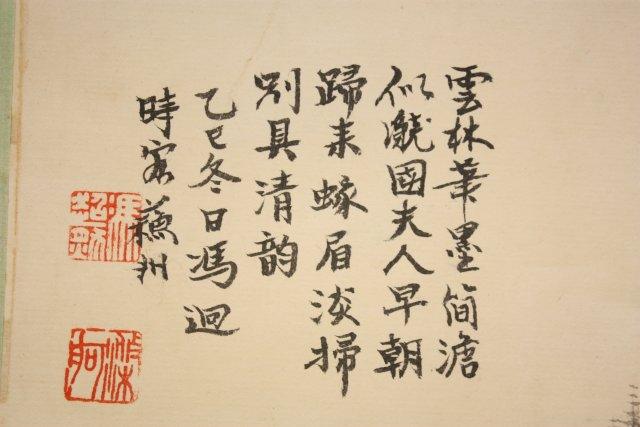 雲林筆墨簡澹
似虢國夫人早朝
歸来蛾眉淡掃
別具清韵
乙巳冬日馮迥
時客蘓州
滌舸